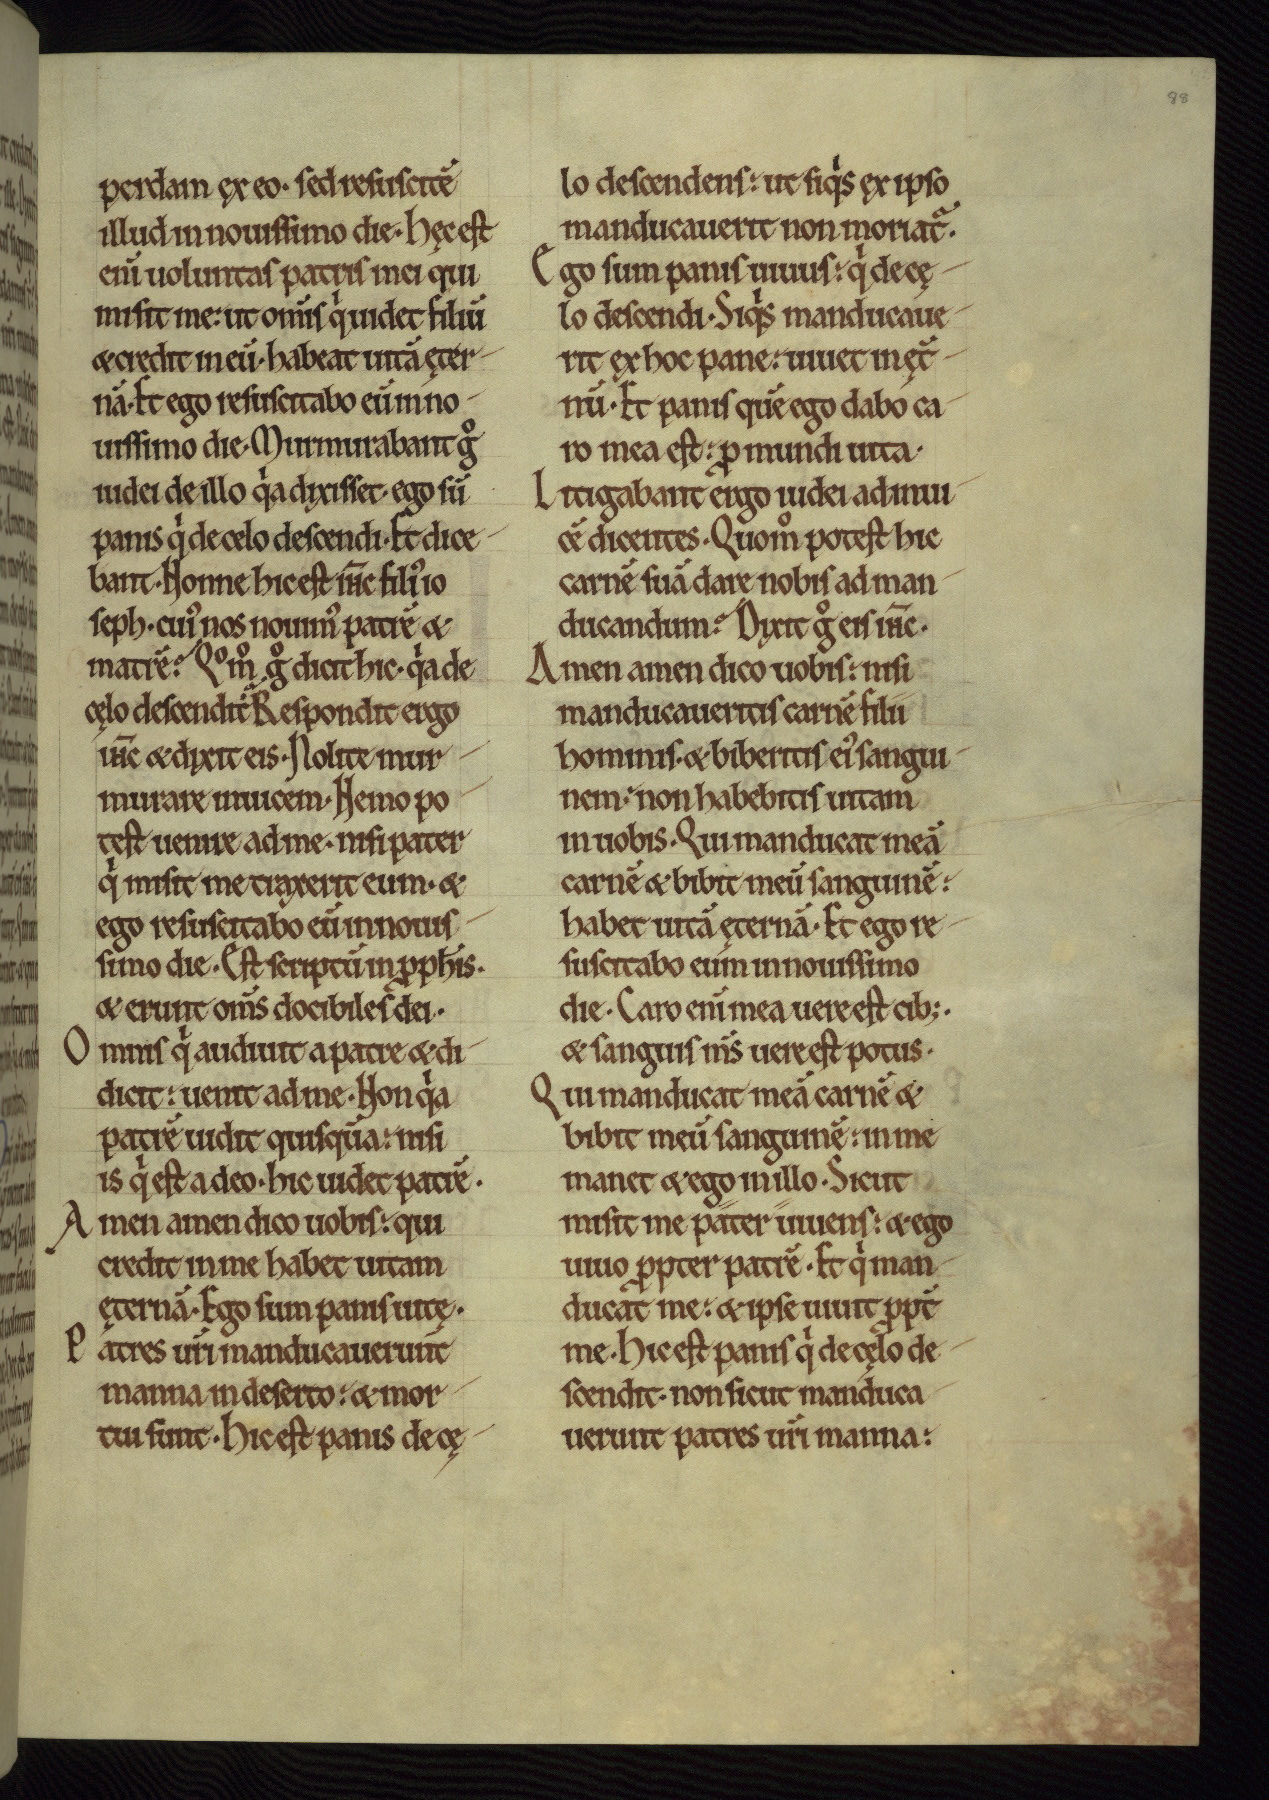 88
perdam ęx eo· sed resuscitē
illud in nouissimo die· hęc est
enī uoluntas patris mei qui
misit me: ut om̄is q̇ uidet filiū
& credit in eū· habeat uitā ęter-
nā· Et ego resuscitabo eū in no-
uissimo die· Murmurabant g̊
iudei de illo q̇a dixisset· ego sū
panis q̇ de celo descendi· Et dice-
bant· Nonne hic est ih̄c filiꝰ io
seph· cuiꝰ nos nouimꝰ patrē &
matrē? Qºm̊ g̊ dicit hic· q̇a de
cęlo descendit? Respondit ergo
ih̄c & dixit eis· Nolite mur-
murare inuicem· Nemo po-
test uenire ad me· nisi pater
q̇ misit me traxerit eum· &
ego resuscitabo eū in nouis-
simo die· Est scriptū in ꝓph̄is·
& erunt om̄s docibiles dei·
Omnis q̇ audiuit a patre & di-
dicit: uenit ad me· Non q̇a
patrē uidit quisquā: nisi
is q̇ est a deo· hic uidet patrē·
Amen amen dico uobis: qui
credit in me habet uitam
ęternā· Ego sum panis uitę·
Patres ur̄i manducauerunt
manna in deserto: & mor-
tui sunt· Hic est panis de cę-
lo descendens: ut siq̇s ęx ipso
manducauerit non moriat᷑·
Ego sum panis uiuus: q̇ de cę-
lo descendi· Siq̇s manducaue-
rit ęx hoc pane: uiuet in ęt̄-
nū· Et panis quē ego dabo ca-
ro mea est: ꝓ mundi uita·
Litigabant ergo iudei ad inui-
cē dicentes· Quom̊ potest hic
carnē suā dare nobis ad man-
ducandum? Dixit g̊ eis ih̄c·
Amen amen dico uobis: nisi
manducaueritis carnē filii
hominis· & biberitis eiꝰ sangui-
nem: non habebitis uitam
in uobis· Qui manducat meā
carnē & bibit meū sanguinē:
habet uitā ęternā· Et ego re-
suscitabo eum in nouissimo
die· Caro enī mea uere est cib;·
& sanguis m̄s uere est potus·
Qui manducat meā carnē &
bibit meū sanguinē: in me
manet & ego in illo· Sicut
misit me pater uiuens: & ego
uiuo ꝓpter patrē· Et q̇ man-
ducat me: & ipse uiuit ꝓpt̄
me· Hic est panis q̇ de cęlo de-
scendit· non sicut manduca-
uerunt patres ur̄i manna: